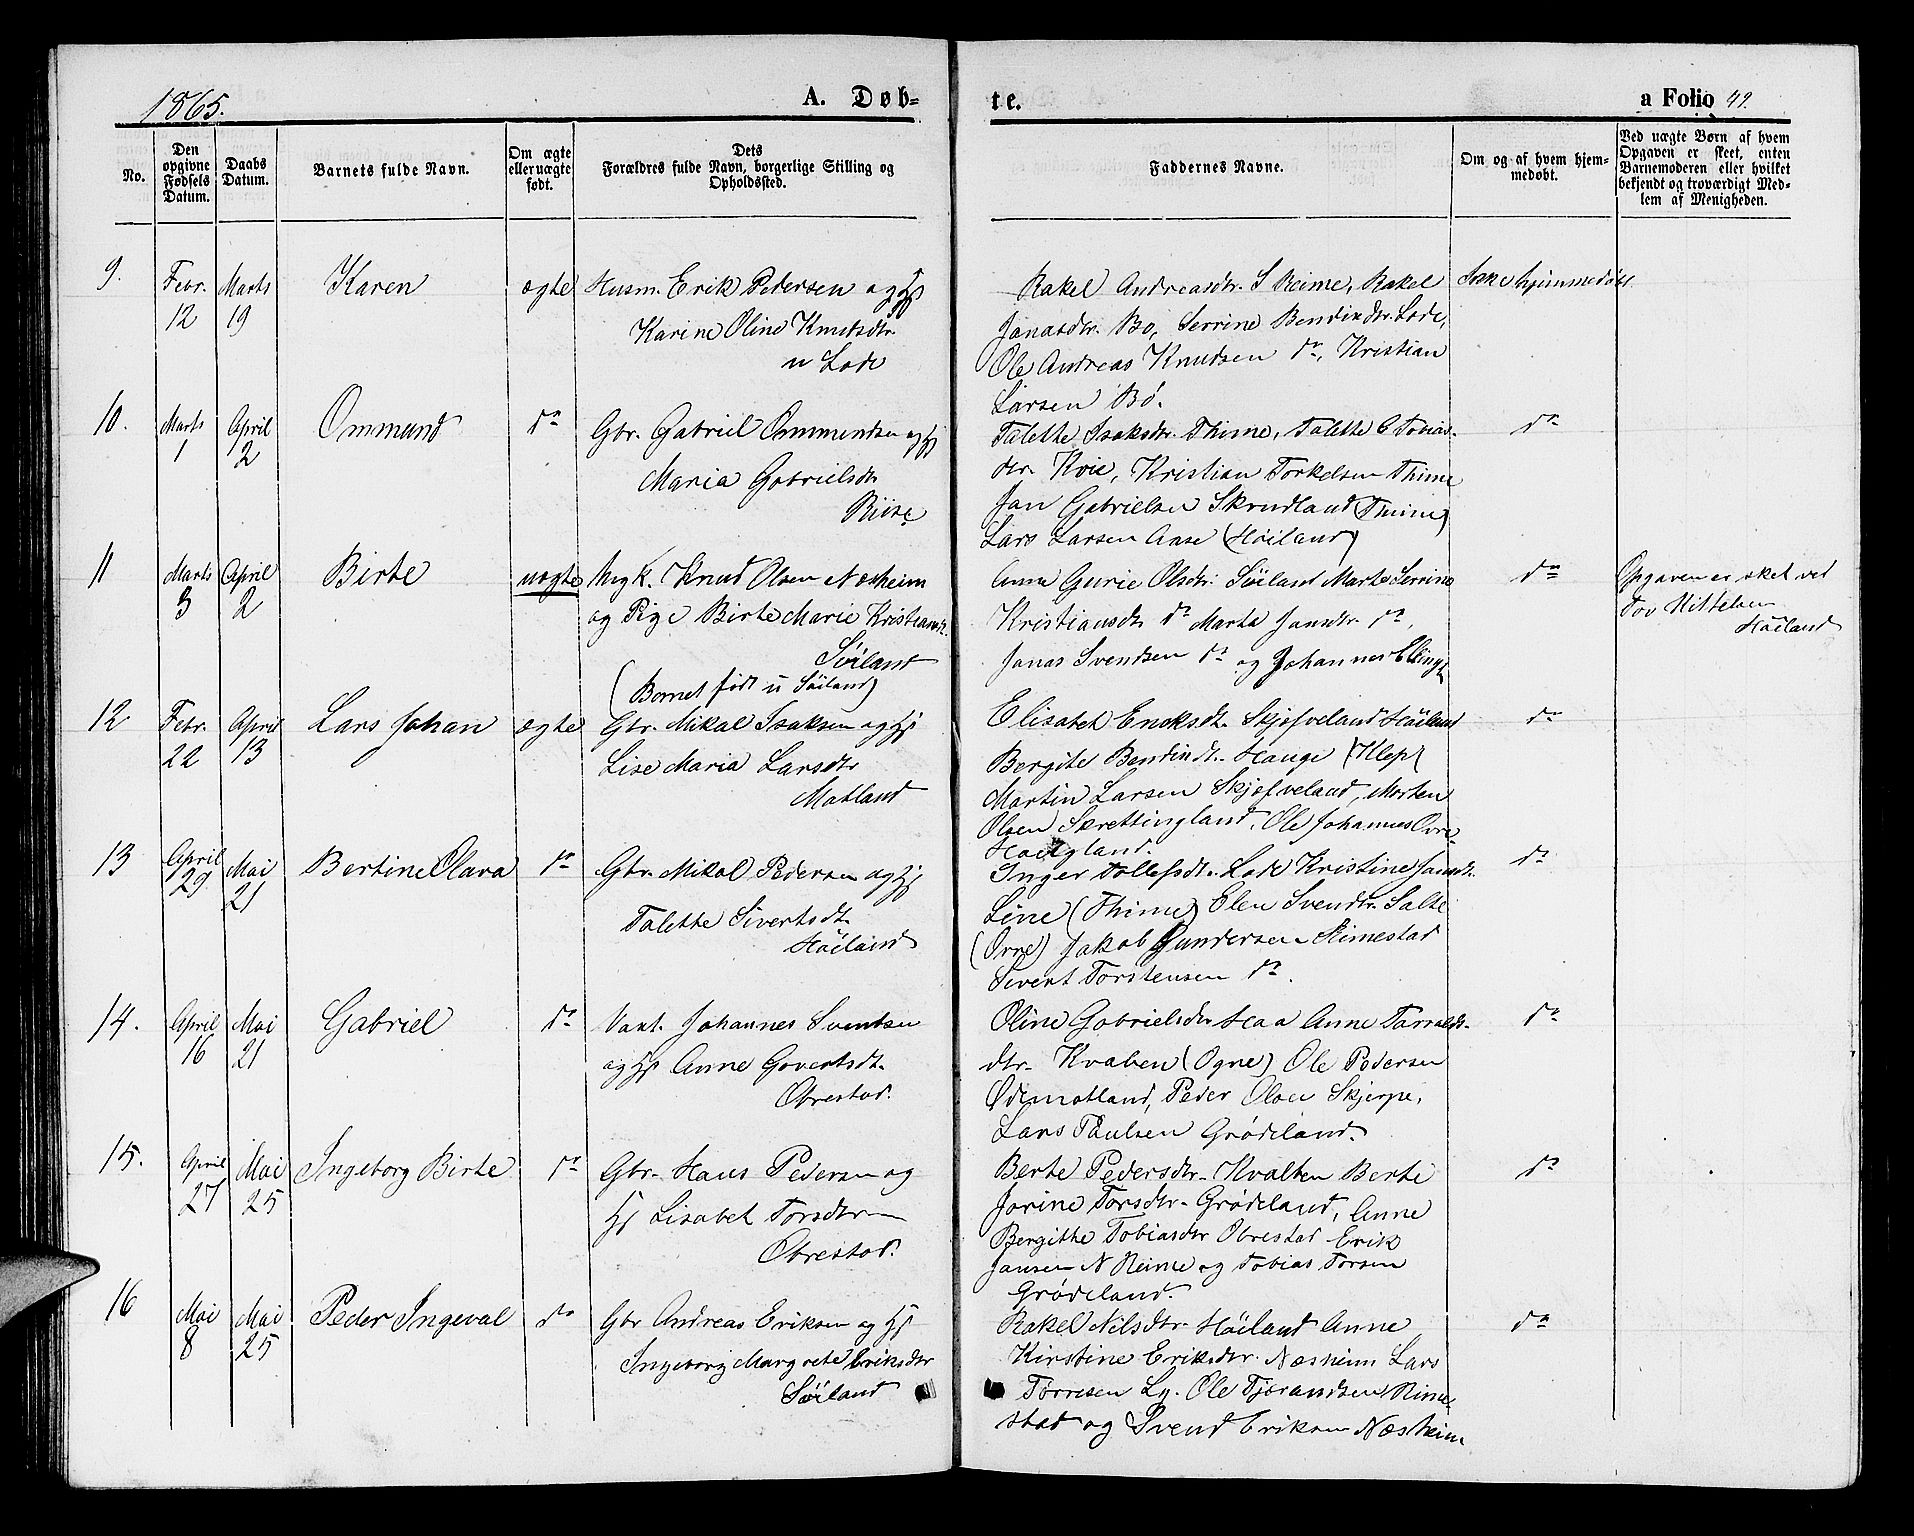 1865.
A. Døb-
te.
a Folio 49.
No.
Den opgivne Fødsels Datum.
Daabs Datum.
Barnets fulde Navn.
Om ægte eller uægte født.
Dets Forældres fulde Navn, borgerlige Stilling og Opholdssted.
Faddernes Navne.
Om og af hvem hjem-
medøbt.
Ved uægte Børn af hvem
Opgaven er skeet, enten
Barnemoderen eller hvilket
bekjendt og troværdigt Med-
lem af Menigheden.
9. Febr. 12 Marts 19 Karen ægte Husm. Erik Pedersen og Hf
Karine Oline Knutsdtr.
n Lode
Rakel Andreasdtr. S Reime, Rakel
Jonasdtr. Bo, Serrine Bendixdtr. Lode,
Ole Andreas Knudsen do, Kristian
Larsen Bø.
Ikke hjemmedøbt
10. Marts 1 April 2 Ommund do Gbr. Gabriel Ommundsen og Hf
Maria Gabrielsdtr
Riise
Talette Isaksdtr. Thime, Talette C Tobias-
dtr. Kvie, Kristian Torkelsen Thime
Jan Gabrielsen Skrudland (Thime)
Lars Larsen Aase (Høiland)
do
11 Marts 3 April 2 Birte uægte Ungk. Knud Olsen Næsheim
og Pige Birte Marie Kristiansdt.
Söiland
(Barnet født i Söiland)
Anna Gurie Olsdtr. Söiland Marte Serrine
Kristiansdtr do Marta Jonsdtr. do,
Jonas Svendsen do og Johannes Ellingsen
do
Opgaven er sket ved
Tov Kittelsen
Høiland
12 Febr. 22 April 13 Lars Johan ægte Gbr. Mikal Isaksen og Hf
Lise Maria Larsdtr
Motland
Elisabet Enoksdt. Skjefveland Høiland
Bergite Bendixdt. Hauge (Klep)
Martin Larsen Skjefveland, Morten
Olsen Skrettingland, Ole Johannes Øvre
Haugland.
do
13 April 29 Mai 21 Bertine Olava do Gbr. Mikal Pedersen og Hf
Talette Sivertsdt.
Høiland
Inger Tollefsdt. Lode Kristine Jansdt.
Line (Thime) Elen Svendtr. Salte
(Orre) Jakob Gundersen Rimestad
Sivert Torstensen do.
do
14. April 16 Mai 21 Gabriel do Vant. Johannes Svendsen
og Hf Anne Govertsdt.
Obrestad.
Oline Gabrielsdtr Haa Anne Torvalds-
dtr. Kvalben (Ogne) Ole Pedersen
Ødemotland, Peder Olsen Skjerpe,
Lars Paulsen Grødeland.
do
15. April 27 Mai 25 Ingeborg Birte do Gbr. Hans Pedersen og
Hf Lisabet Torsdtr
Obrestad.
Berte Pedersdtr. Kvalben Berte
Jorine Torsdtr. Grødeland, Anne
Bergitte Tobiasdtr Obrestad Erik
Jansen N Reime og Tobias Torsen
Grødeland.
do
16 Mai 8 Mai 25 Peder Ingeval do Gbr Andreas Eriksen og Hf
Ingeborg Margrete Eriksdtr
Söiland
Rakel Nilsdtr. Høiland Anne
Kirstine Eriksdtr. Næsheim Lars
Torresen Lg. Ole Tjerandsen Rime-
stad og Svend Eriksen Næsheim
do